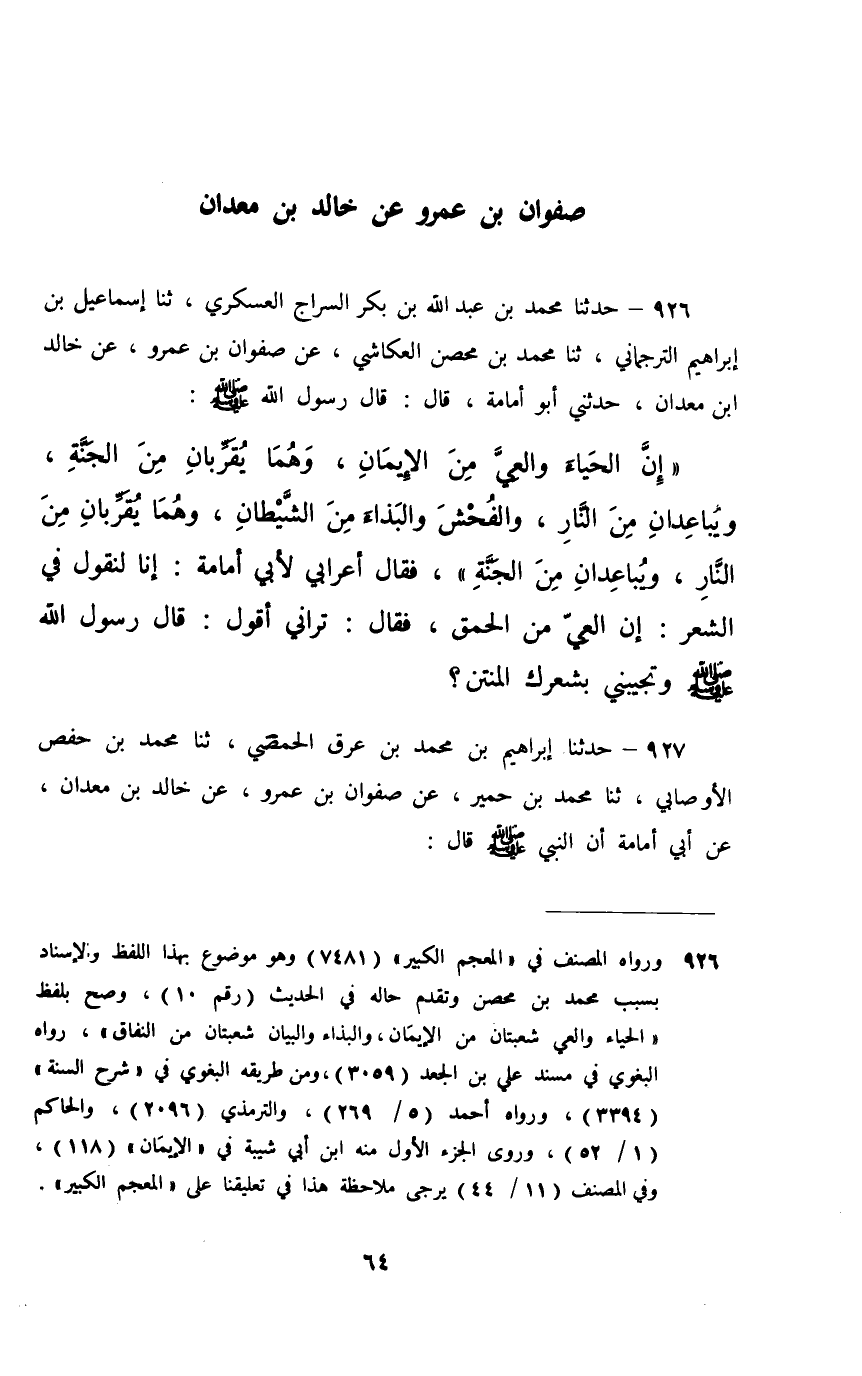 صفوان بن عمرو عن خالد بن معدان
٩٢٦ – حدثنا محمد بن عبد الله بن بكر السراج العسكري ، ثنا إسماعيل بن
إبراهيم الترجماني ، ثنا محمد بن محصن العكاشي ، عن صفوان بن عمرو ، عن خالد
ابن معدان ، حدثني أبو أمامة ، قال : قال رسول الله ﷺ :
« إِنَّ الحَياءَ والعِيَّ مِنَ الإِيمَانِ ، وَهُمَا يُقَرِّبانِ مِنَ الجَنَّةِ ،
ويُباعِدانِ مِنَ النَّارِ ، والفُحْشَ والبَذاءَ مِنَ الشَّيْطانِ ، وهُمَا يُقَرِّبانِ مِنَ
النَّارِ ، ويُباعِدانِ مِنَ الجَنَّةِ » ، فقال أعرابي لأبي أمامة : إنا لنقول في
الشعر : إن العيّ من الحمق ، فقال : تراني أقول : قال رسول الله
ﷺ وتجيبني بشعرك المنتن ؟
٩٢٧ – حدثنا إبراهيم بن محمد بن عرق الحمصي ، ثنا محمد بن حفص
الأوصابي ، ثنا محمد بن حمير ، عن صفوان بن عمرو ، عن خالد بن معدان ،
عن أبي أمامة أن النبي ﷺ قال :
٩٢٦ ورواه المصنف في «المعجم الكبير» (٧٤٨١) وهو موضوع بهذا اللفظ والإسناد
بسبب محمد بن محصن وتقدم حاله في الحديث (رقم ١٠) ، وصح بلفظ
«الحياء والعي شعبتان من الإيمان ، والبذاء والبيان شعبتان من النفاق» ، رواه
البغوي في مسند علي بن الجعد (٣٠٥٩) ، ومن طريقه البغوي في «شرح السنة»
(٣٣٩٤) ، ورواه أحمد (٥/ ٢٦٩) ، والترمذي (٢٠٩٦) ، والحاكم
(١/ ٥٢) ، وروى الجزء الأول منه ابن أبي شيبة في «الإيمان» (١١٨) ،
وفي المصنف (١١/ ٤٤) يرجى ملاحظة هذا في تعليقنا على «المعجم الكبير» .
٦٤